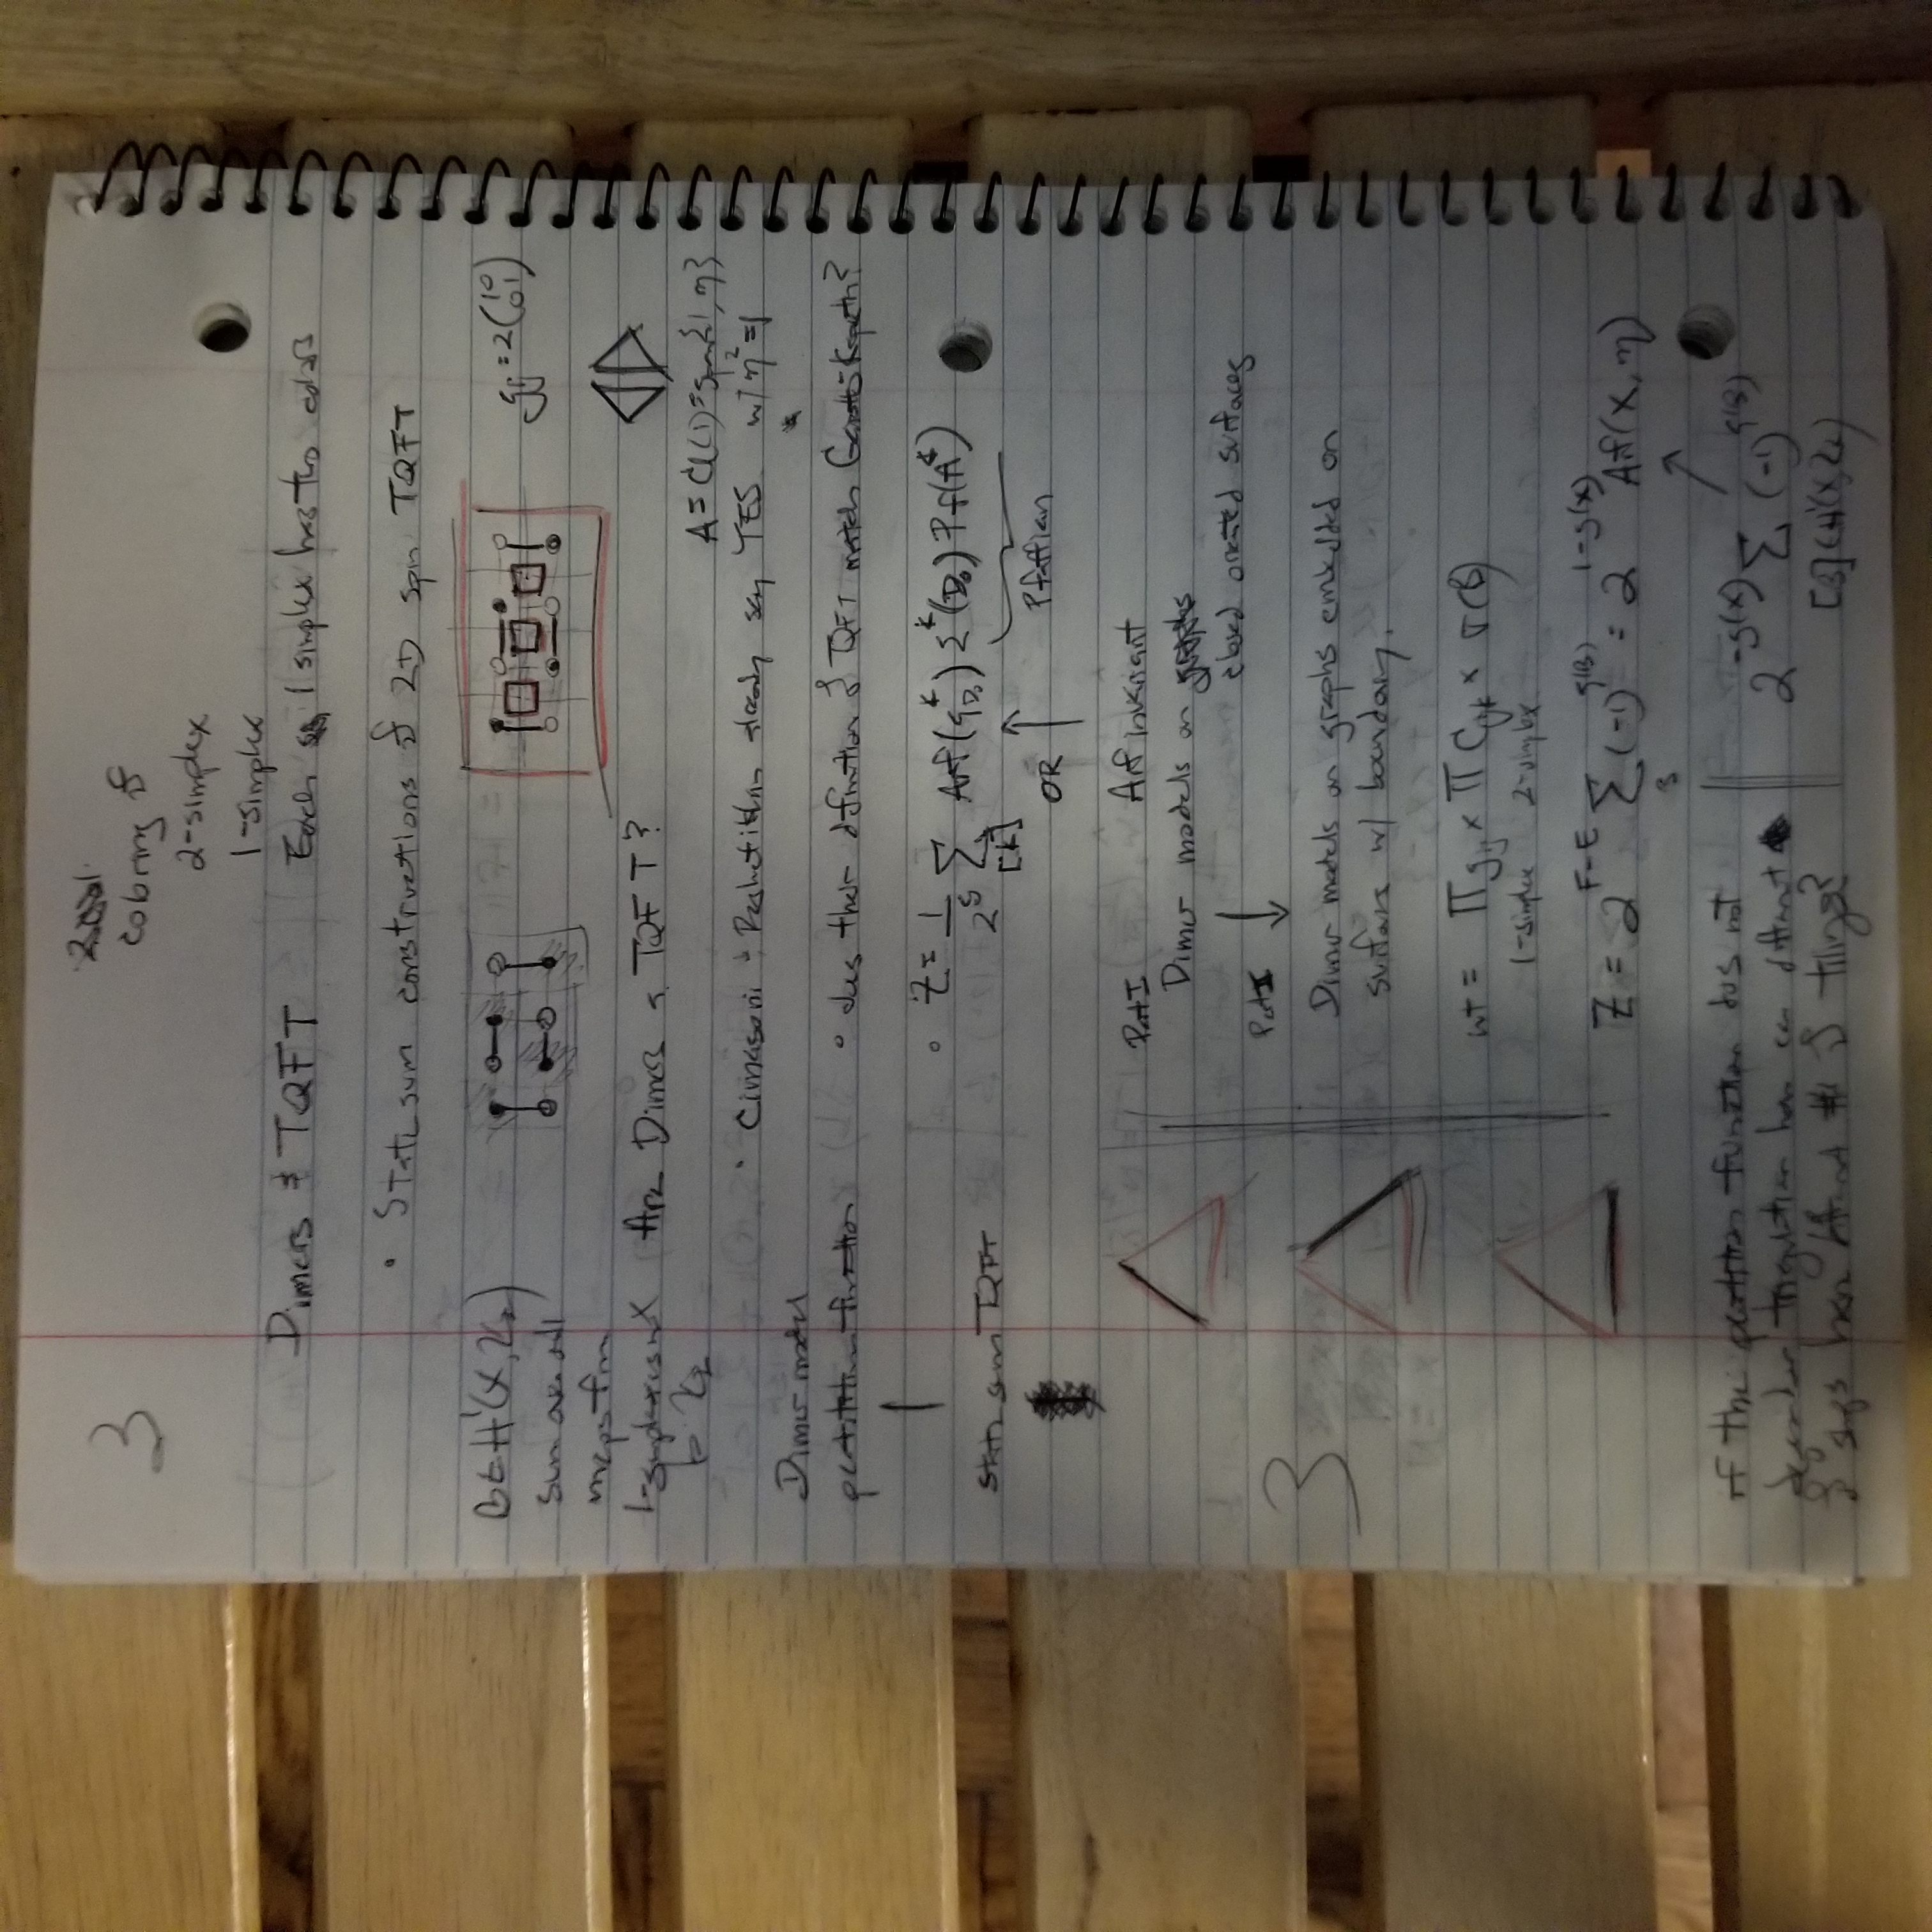 3
coloring of
2-simplex
1-simplex
Dimers & TQFT
Each 1 simplex has two colors
• State sum constructions of 2D spin TQFT
β∈H¹(X,Z₂)
sum over all
maps from
1-simplexes in X
to Z₂
gᵢⱼ=2(1 0 0 1)
Are Dimers a TQFT?
A = Cl(1)=Span{1, η}
w/ η²=1
• Cimasoni + Reshetikhin already say YES
Dimer model
partition function
• does their definition of TQFT match
state sum TQFT
• Z = 1/2^g Σ_[K] Arf(q^K_D₀) Σ^K(D₀) Pf(A^K)
OR
Pfaffian
Arf invariant
Part I
Dimer models on
closed oriented surfaces
Part II
Dimer models on graphs embedded on
surfaces w/ boundary.
3
wt = Π gᵢⱼ × Π Cᵢⱼₖ × σ(β)
1-simplex 2-simplex
Z = 2^(F-E) Σ_β (-1)^q(β) = 2^(1-g(X)) Arf(X, η)
2^(-g(X)) Σ (-1)^q(β)
[β]∈H¹(X,Z₂)
if the partition function does not
depend on triangulation how can different
shapes have different # of tilings?